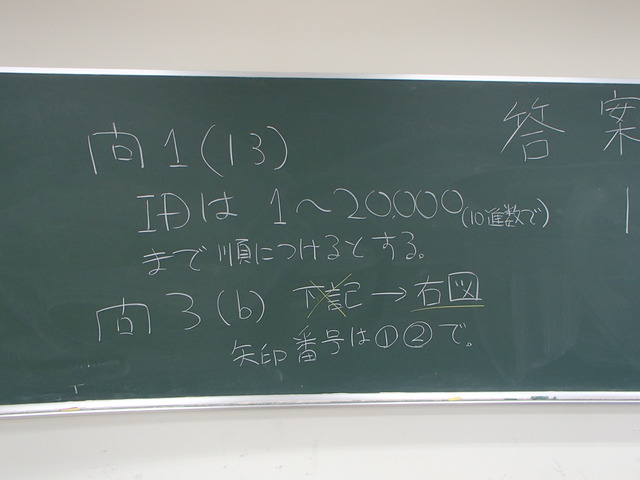 問1(13)
IDは 1〜20,000(10進数で)
まで順につけるとする。
問3(b) 下記→右図
矢印番号は①②で。
答案
1